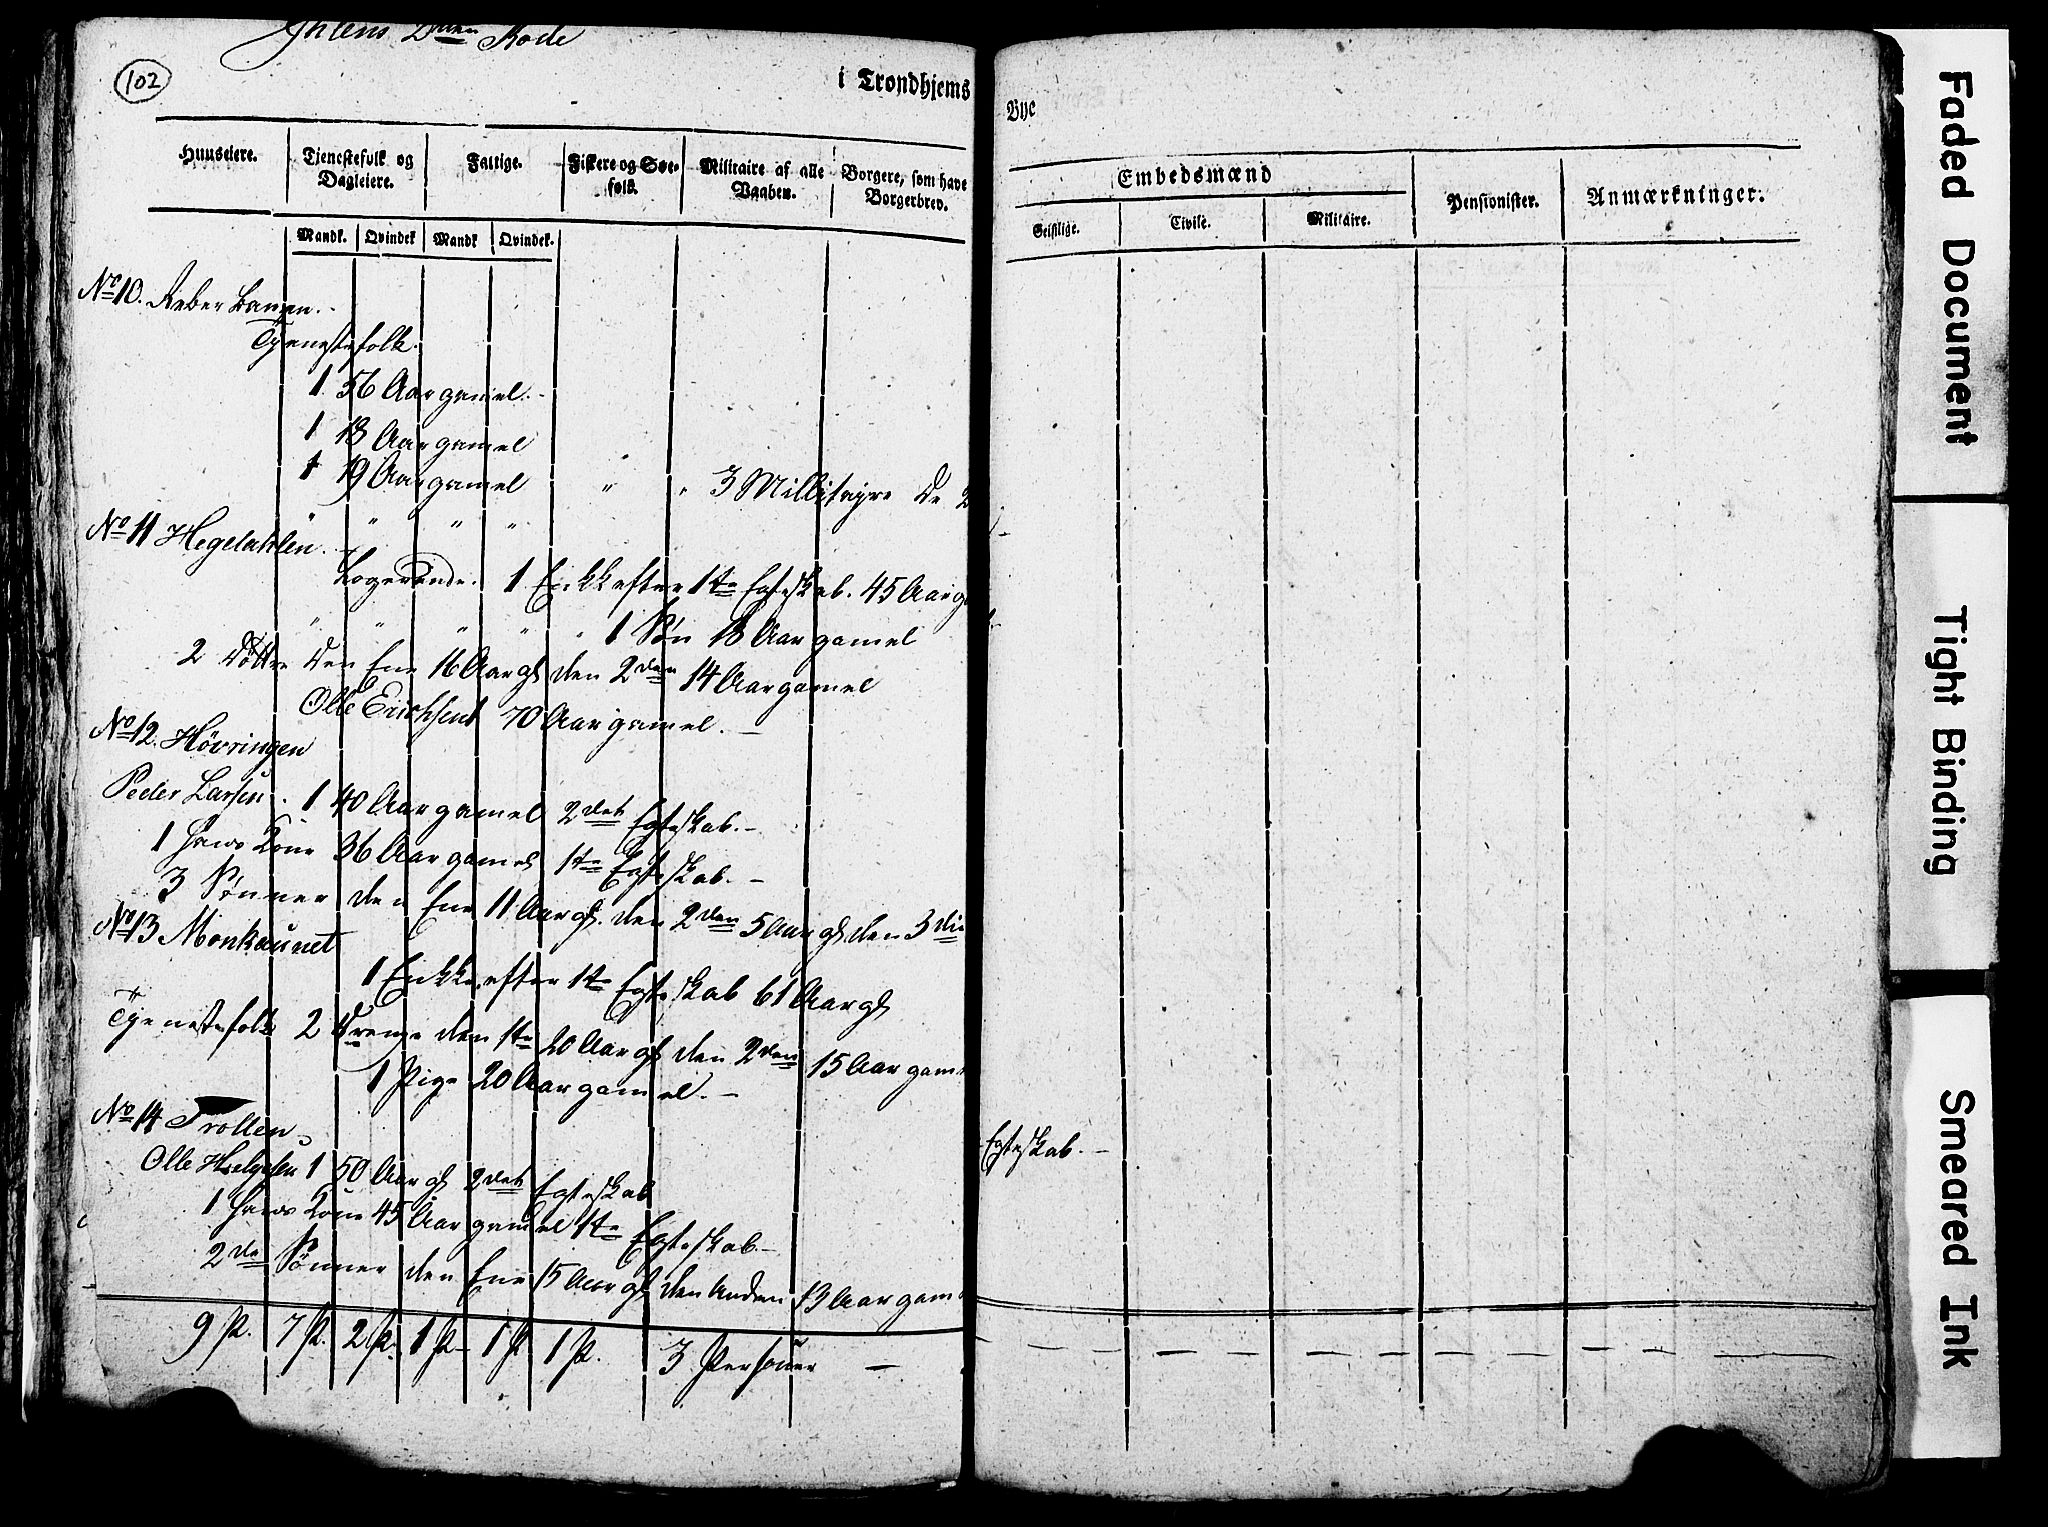 Ihlens 2den Rode
102
i Trondhjems
Bye
Huuseiere.
Tjenestefolk og Dagleiere.
Fattige.
Fiskere og Søe-folk.
Militaire af alle Vaaben.
Borgere, som have Borgerbrev.
Embedsmænd
Pensionister.
Anmærkninger.
Mandk. Qvindek Mandk Qvindek.
Geistlige. Civile. Militaire.
No 10. Reber Banen.
Tjenestefolk.
1 56 Aar gamel.
1 18 Aar gamel
1 19 Aar gamel " " 3 Millitayre De 2
" " " "
No 11 Hegdahlen.
Logerende. 1 Enkke efter 1te Egteskab. 45 Aar g
" " " " " 1 Søn 18 Aar gamel
2 Døttre den Ene 16 Aar gl den 2den 14 Aar gamel
Olle Erichsen 1 70 Aar gamel.
No 12. Høvringen
Peder Larsen. 1 40 Aar gamel 2det Egteskab.
1 Hans Kone 36 Aar gamel 1te Egteskab.
3 Sønner den Ene 11 Aar gl. den 2den 5 Aar gl, den 3die
No 13 Monkaunet
1 Enkke efter 1te Egteskab 61 Aar gl
Tjenestefolk 2 Drenge den 1te 20 Aar gl den 2den 15 Aar gam
1 Pige 20 Aar gamel.
No 14 Trollen
Olle Helgesen 1 50 Aar gl 2det Egteskab
1 Hans Kone 45 Aar gamel 1te Egteskab.
Egteskab.
2de Sønner den Ene 15 Aar gl den Anden 13 Aar gam
9 P. 7 P. 2 P. 1 P 1 P 1 P. 3 Personer
Faded Document
Tight Binding
Smeared Ink